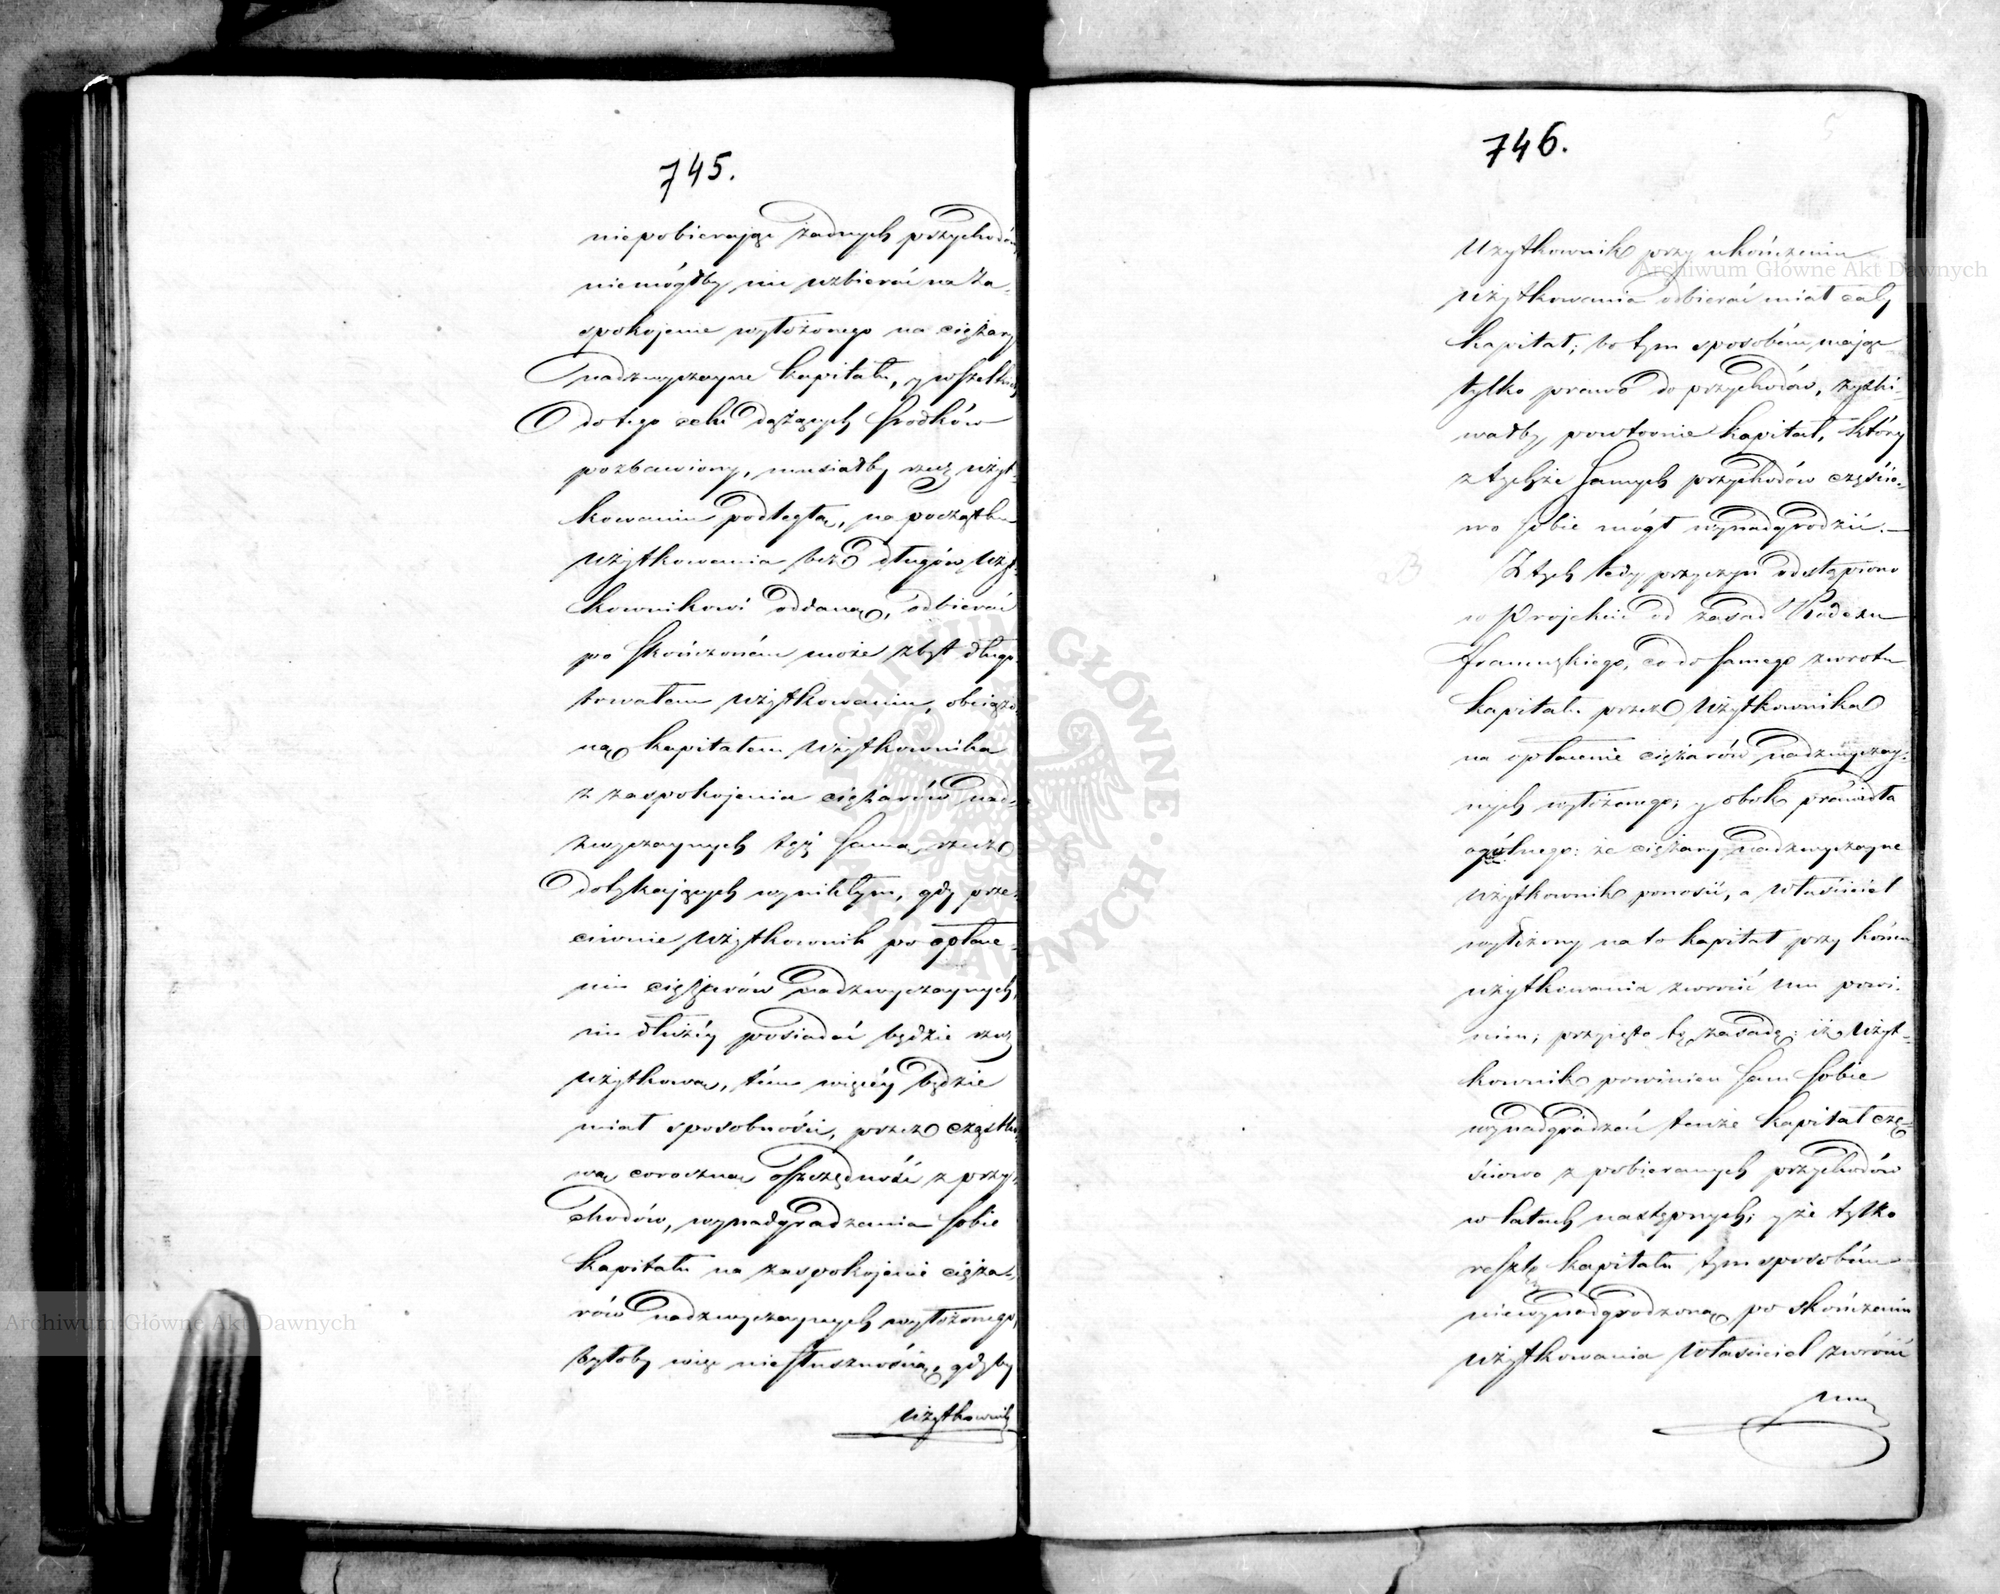 745.
niepobierając żadnych przychodów
niemógłby nic uzbierać na za-
spokojenie wyłożonego na ciężary
nadzwyczayne kapitału, y wszelkich
do tego celu dążących środków
pozbawiony, musiałby rzecz użyt-
kowaniu podległą, na początku
użytkowania bez długów użyt-
kownikowi oddaną, odbierać
po skończoném może zbyt długo
trwałem użytkowaniu, obciążo-
ną kapitałem Użytkownika
z zaspokojenia ciężarów nad-
zwyczaynych tęż samą rzecz
dotykających wynikłym, gdy prze-
ciwnie Użytkownik po opłace-
niu ciężarów nadzwyczaynych,
im dłużéy posiadać będzie rzecz
użytkową, tém więcéy będzie
miał sposobności, przez cząstko-
wą coroczną oszczędność z przy-
chodów, wynadgradzania sobie
kapitału na zaspokojenie cięża-
rów nadzwyczaynych wyłożonego,
byłoby więc niesłusznością, gdyby
użytkownik
746.
Użytkownik przy ukończeniu
użytkowania odbierać miał cały
kapitał; bo tym sposobém mając
tylko prawo do przychodów, zyski-
wałby powtornie kapitał, który
z tychże samych przychodów częścio-
wo sobie mógł wynadgrodzić.—
Z tych tedy przyczyn odstąpiono
w Projekcie od zasad Kodexu
francuzkiego, co do samego zwrotu
kapitału przez Użytkownika
na opłacenie ciężarów nadzwyczay-
nych wyłożonego; y obok prawidła
ogólnego: że ciężary nadzwyczayne
użytkownik ponosić, a właściciel
wyłożony na to kapitał przy końcu
użytkowania zwrócić mu powi-
nien; przyjęto tę zasadę; iż użyt-
kownik powinien sam sobie
wynadgradzać tenże kapitał czę-
ściowo z pobieranych przychodów
w latach następnych; y że tylko
resztę kapitału tym sposobém
niewynadgrodzoną po skończeniu
użytkowania właściciel zwrócić
mu
Archiwum Główne Akt Dawnych
Archiwum Główne Akt Dawnych
ARCHIWUM GŁÓWNE AKT DAWNYCH